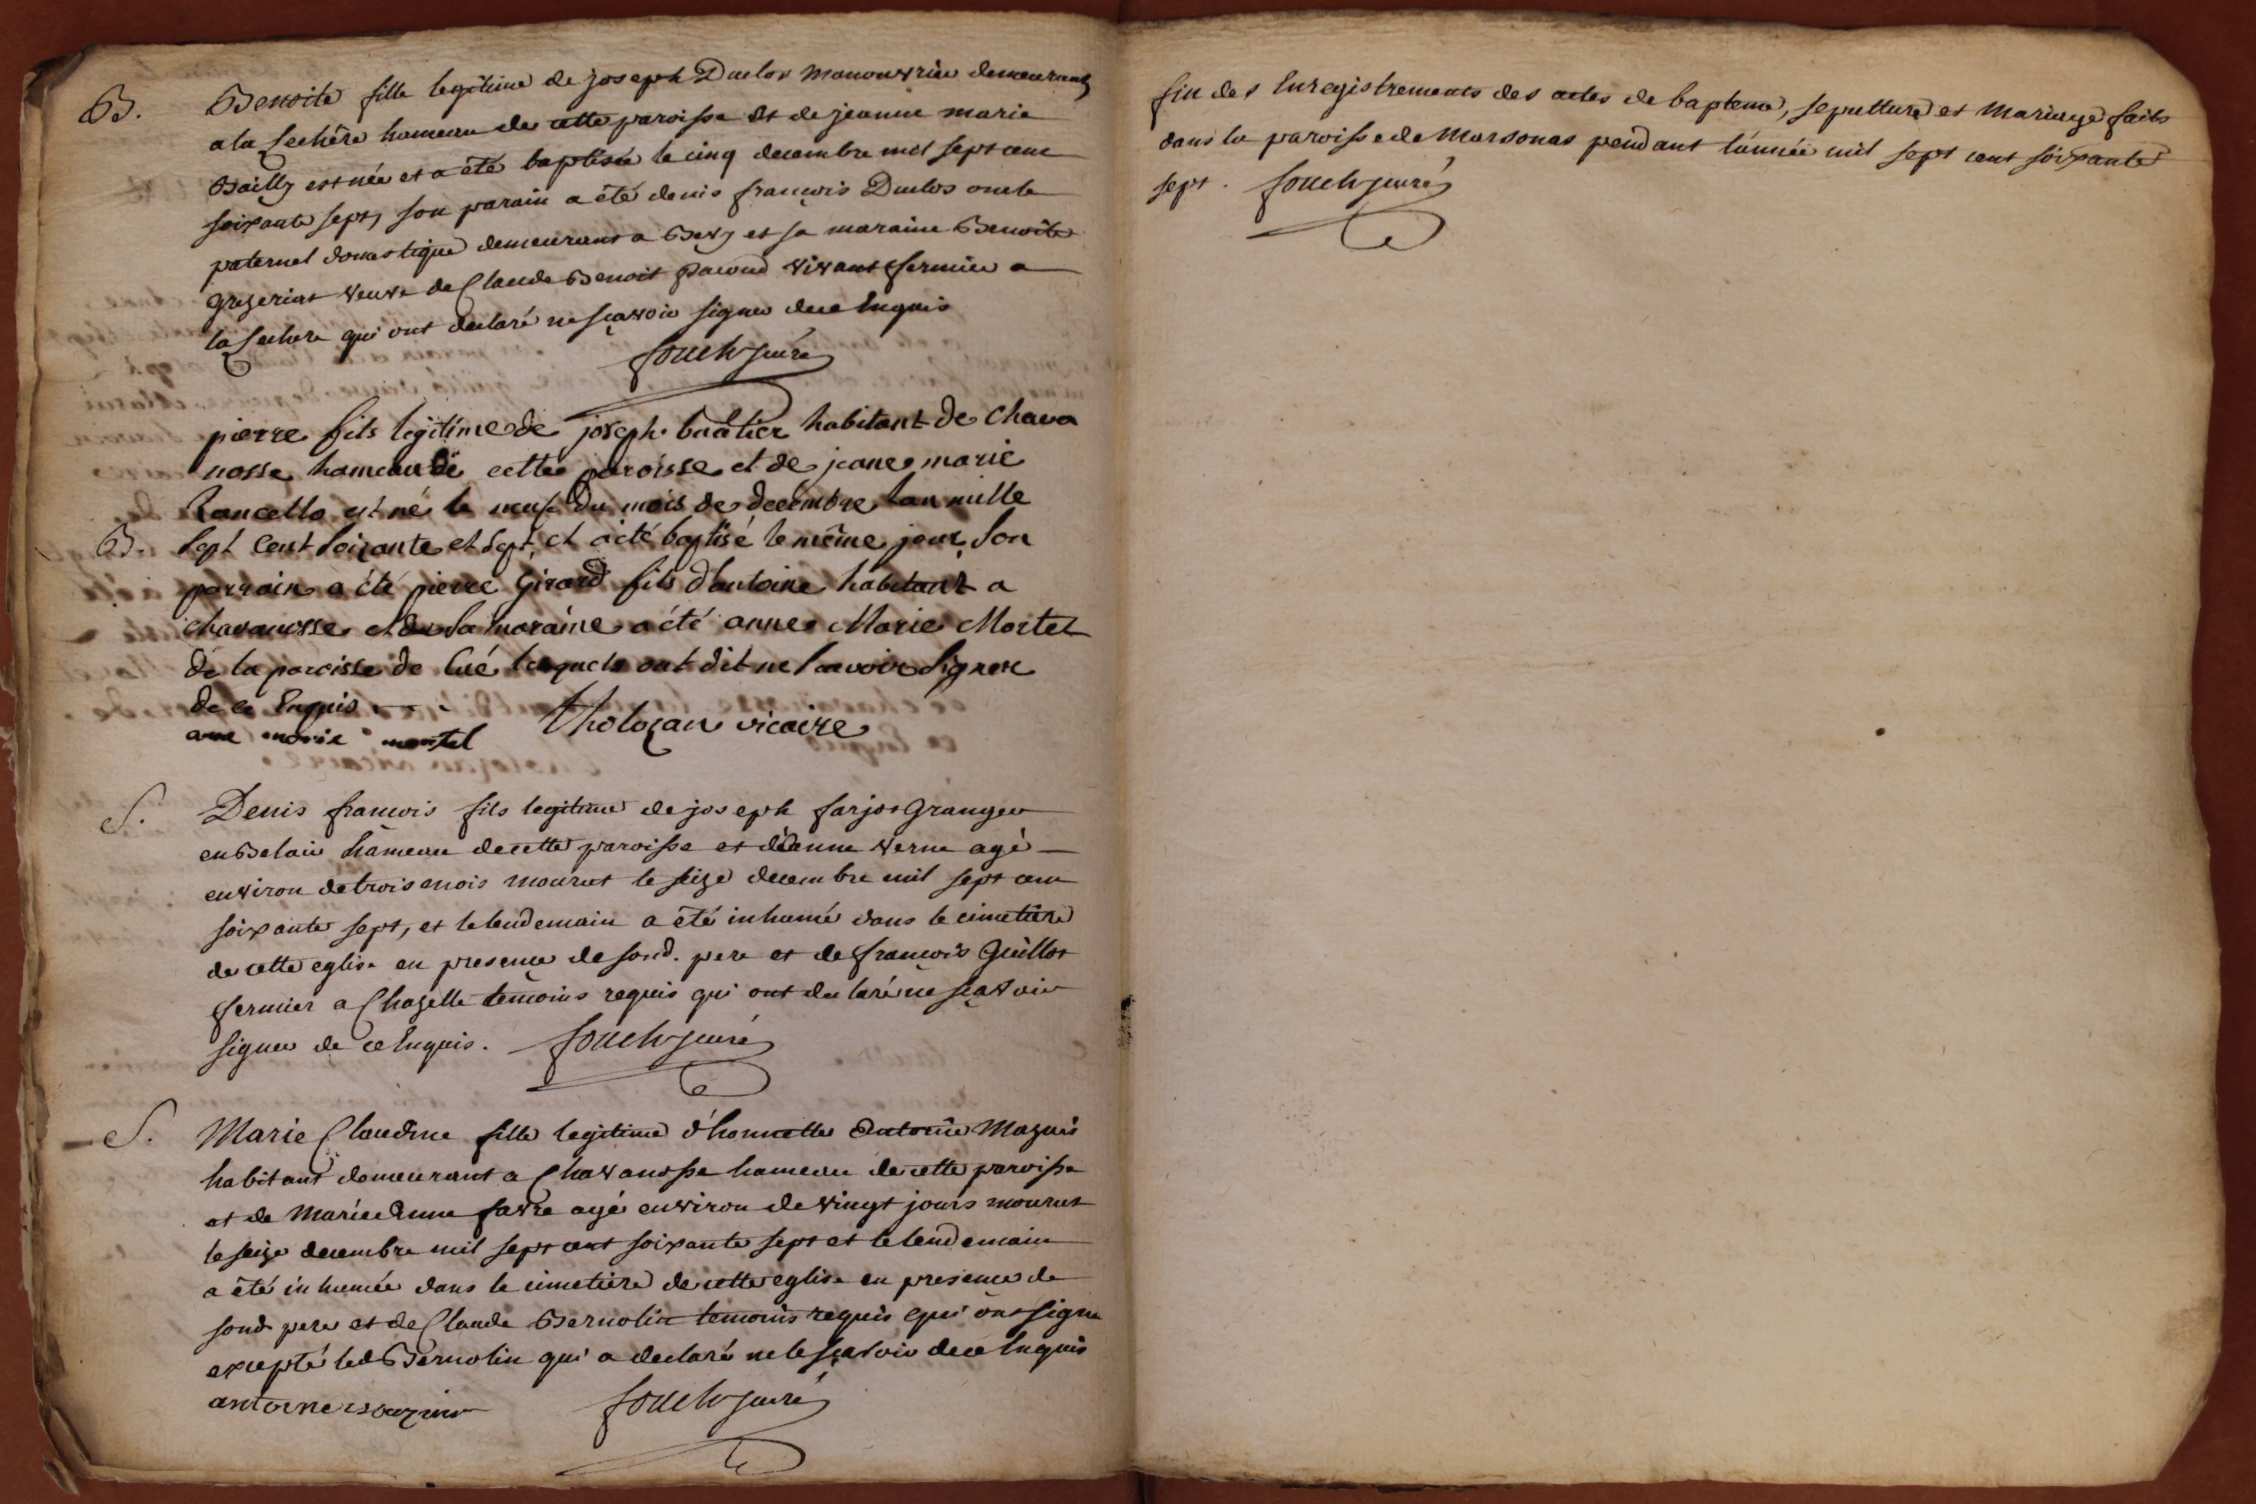 B. Benoite fille legitime de joseph Duclos manouvrier demeurant
a la Sechere hameau de cette paroisse et de jeanne marie
Bailly est née et a été baptisée le cinq decembre mil sept cent
soixante sept, son parain a été denis françois Duclos oncle
paternel domestique demeurant a Bery et sa maraine Benoite
veuve de Claude Benoit vivant fermier a
la Sechere qui ont declaré ne sçavoir signer de ce Enquis
fouch curé
pierre fils legitime de joseph habitant de Chava
nosse hameau de cette paroisse et de jeane marie
Rancello est né le neuf du mois de decembre lan mille
B. Sept Cent Soixante et Sept et a été baptisé le même jour, Son
parrain a été pierre Girard fils d'antoine habitant a
chavanosse et Sa maraine a été anne Marie Mortel
de la paroisse de Cué lesquels ont dit ne Savoir Signer
de ce Enquis
ane marie mortel Tholozan vicaire
S. Denis francois fils legitime de joseph farjot Granger
en Belair hameau de cette paroisse et d'anne verne agé
environ de trois mois mourut le seize decembre mil sept cent
soixante sept, et le lendemain a été inhumé dans le cimetiere
de cette eglise en presence de sond. pere et de francois Guillot
fermier a Chazelle temoins requis qui ont declaré ne sçavoir
signer de ce Enquis. fouch curé
S. Marie Claudine fille legitime d'honnette Antoine Mazuis
habitant demeurant a Chavanosse hameau de cette paroisse
et de Marie Anne favre agé environ de vingt jours mourut
le seize decembre mil sept cent soixante sept et le lendemain
a été inhumée dans le cimetiere de cette eglise en presence de
sond pere et de Claude Bernolin temoins requis qui ont signe
excepté led Bernolin qui a declaré ne le sçavoir de ce Enquis
antoine fouch curé
fin des Enregistrements des actes de bapteme, sepulture et Mariage faits
dans la paroisse de Marsonas pendant l'année mil sept cent soixante
sept. fouch curé